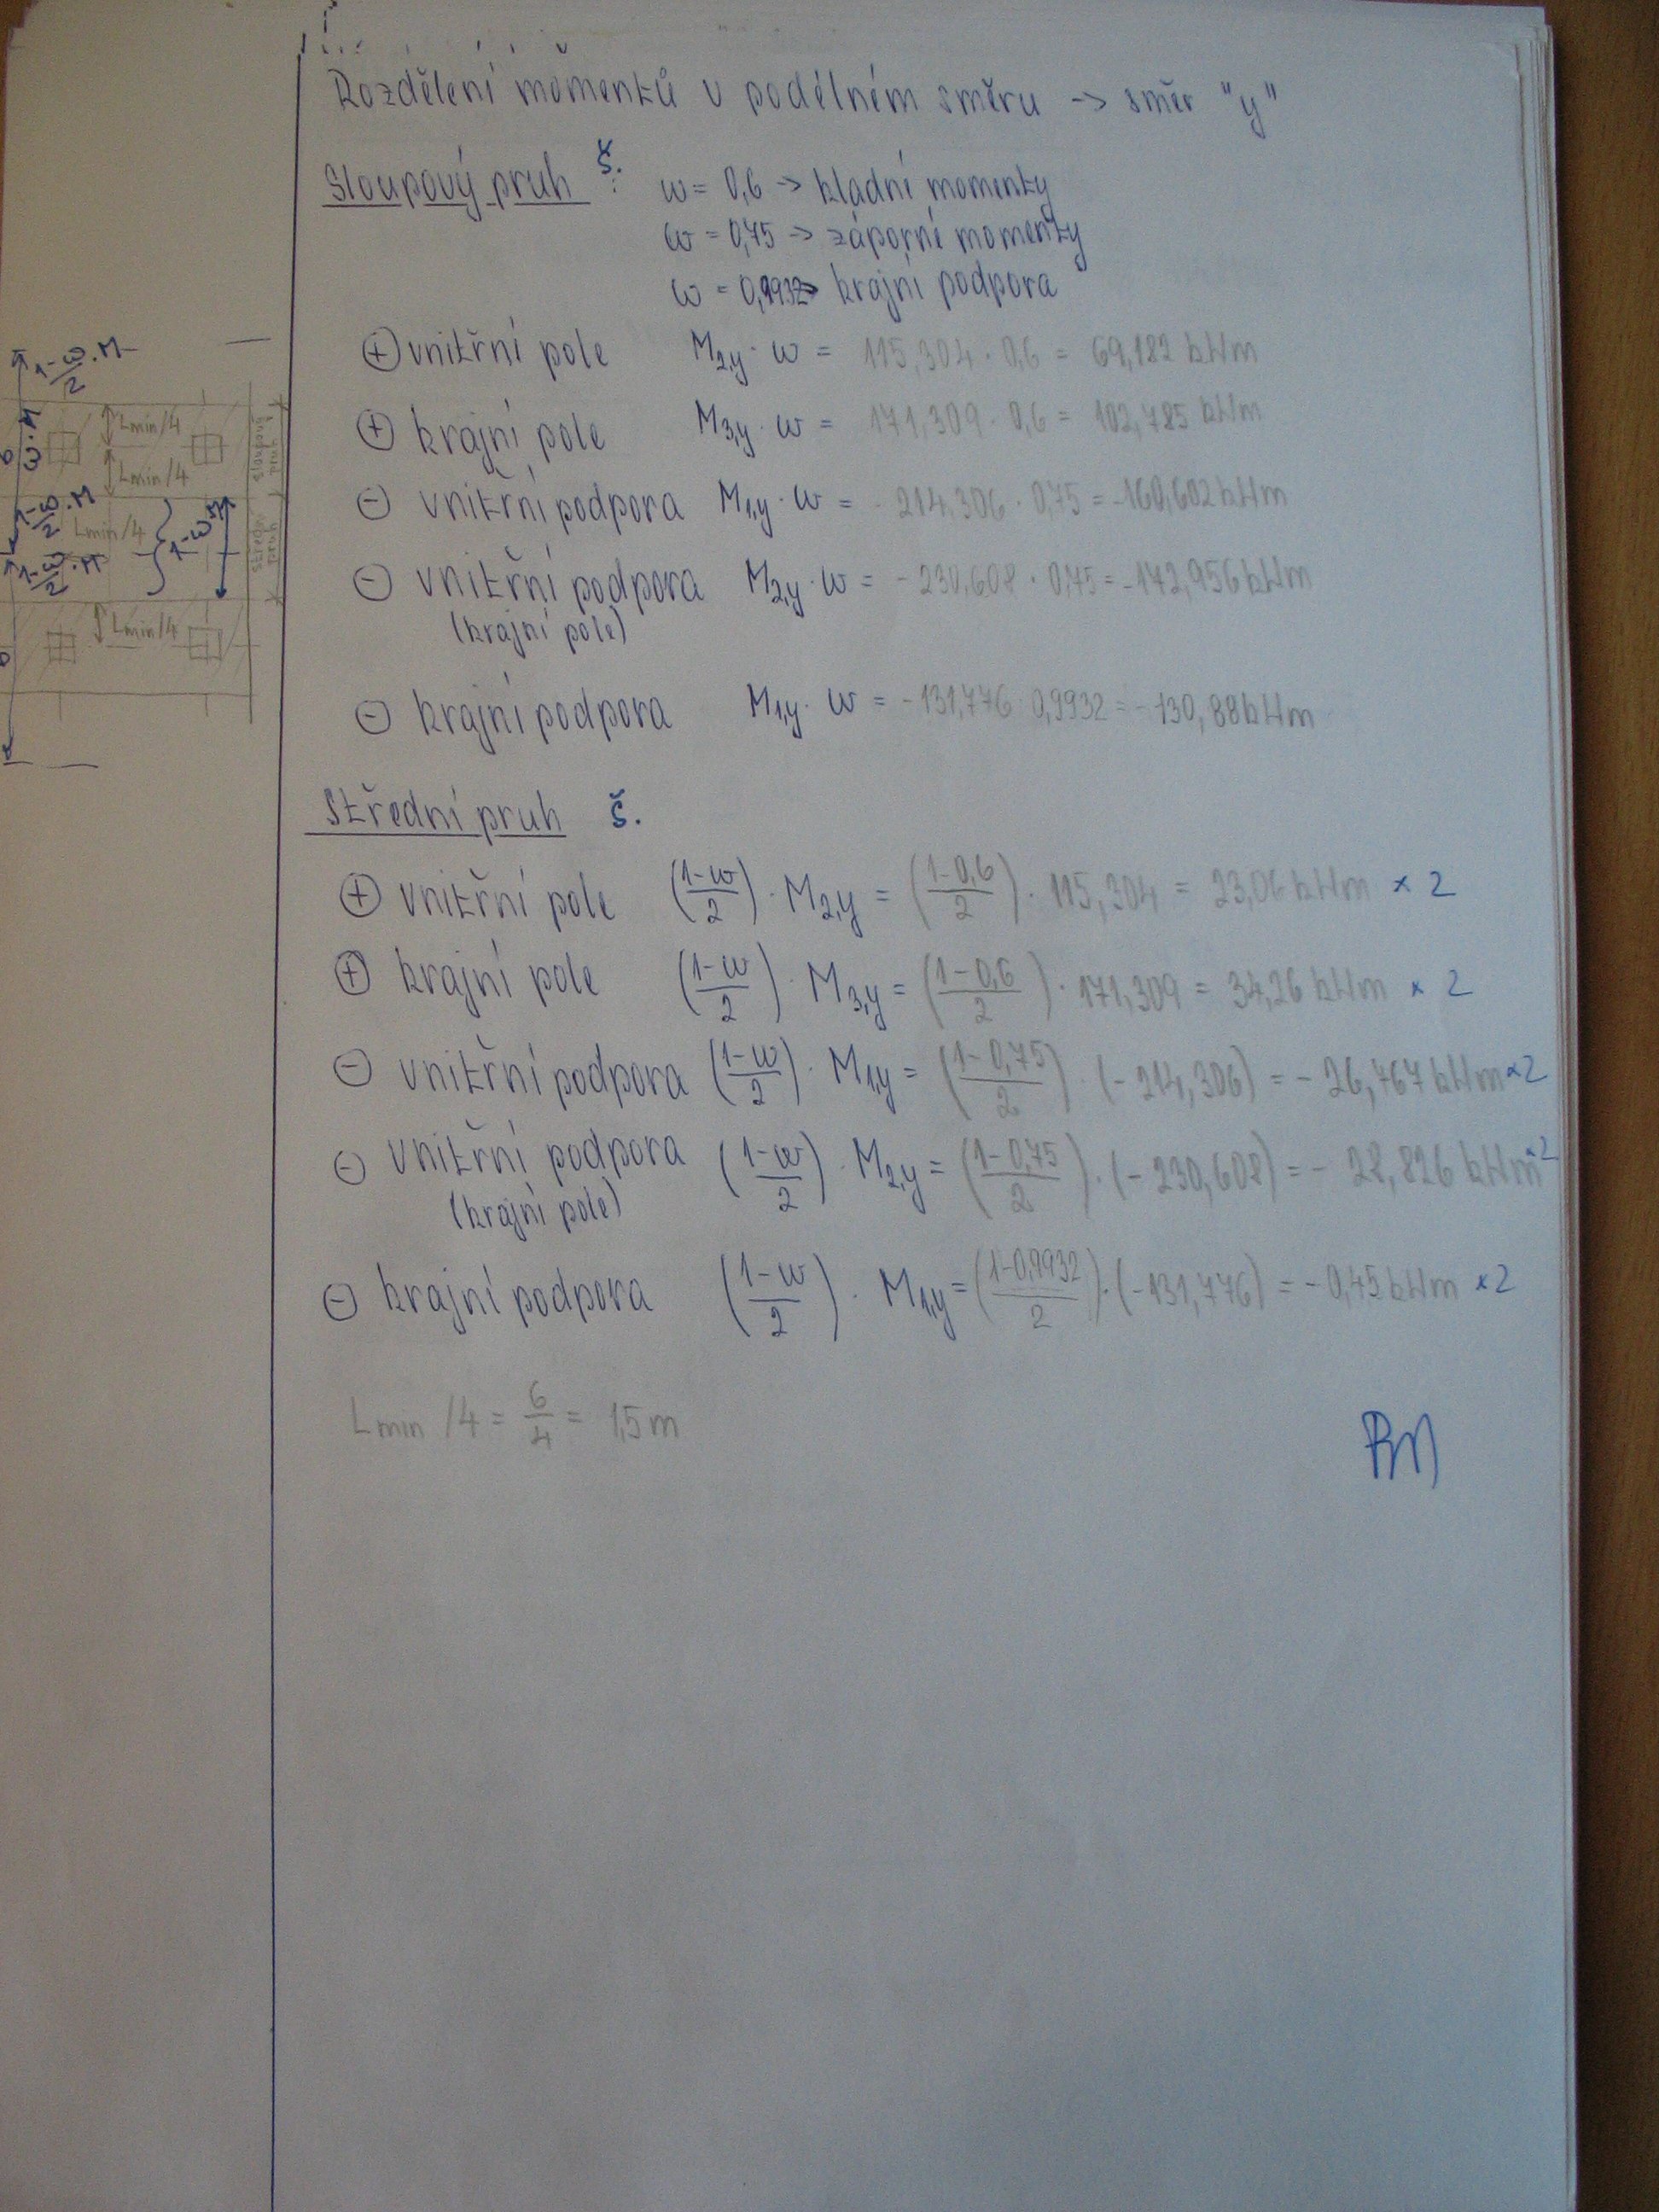 Rozdělení momentů v podélném směru -> směr "y"
Sloupový pruh š. : w = 0,6 -> kladní momenty
w = 0,75 -> záporné momenty
w = 0,9932 -> krajní podpora
⊕ vnitřní pole M2,y · w = 115,304 · 0,6 = 69,182 kNm
⊕ krajní pole M3,y · w = 171,309 · 0,6 = 102,785 kNm
⊖ vnitřní podpora M1,y · w = - 214,306 · 0,75 = -160,602 kNm
⊖ vnitřní podpora M2,y · w = - 230,608 · 0,75 = -172,956 kNm
(krajní pole)
⊖ krajní podpora M1,y · w = - 131,776 · 0,9932 = - 130,88 kNm
Střední pruh š.
⊕ vnitřní pole ((1-w)/2) · M2,y = ((1-0,6)/2) · 115,304 = 23,06 kNm × 2
⊕ krajní pole ((1-w)/2) · M3,y = ((1-0,6)/2) · 171,309 = 34,26 kNm × 2
⊖ vnitřní podpora ((1-w)/2) · M1,y = ((1-0,75)/2) · (-214,306) = - 26,767 kNm ×2
⊖ vnitřní podpora ((1-w)/2) · M2,y = ((1-0,75)/2) · (-230,608) = - 28,826 kNm ×2
(krajní pole)
⊖ krajní podpora ((1-w)/2) · M1,y = ((1-0,9932)/2) · (-131,776) = - 0,45 kNm ×2
Lmin /4 = 6/4 = 1,5 m
1-w/2 · M
w · M
Lmin/4
Lmin/4
sloupový pruh
1-w/2 · M
Lmin/4
1-w/2 · M
1-w M
střední pruh
Lmin/4